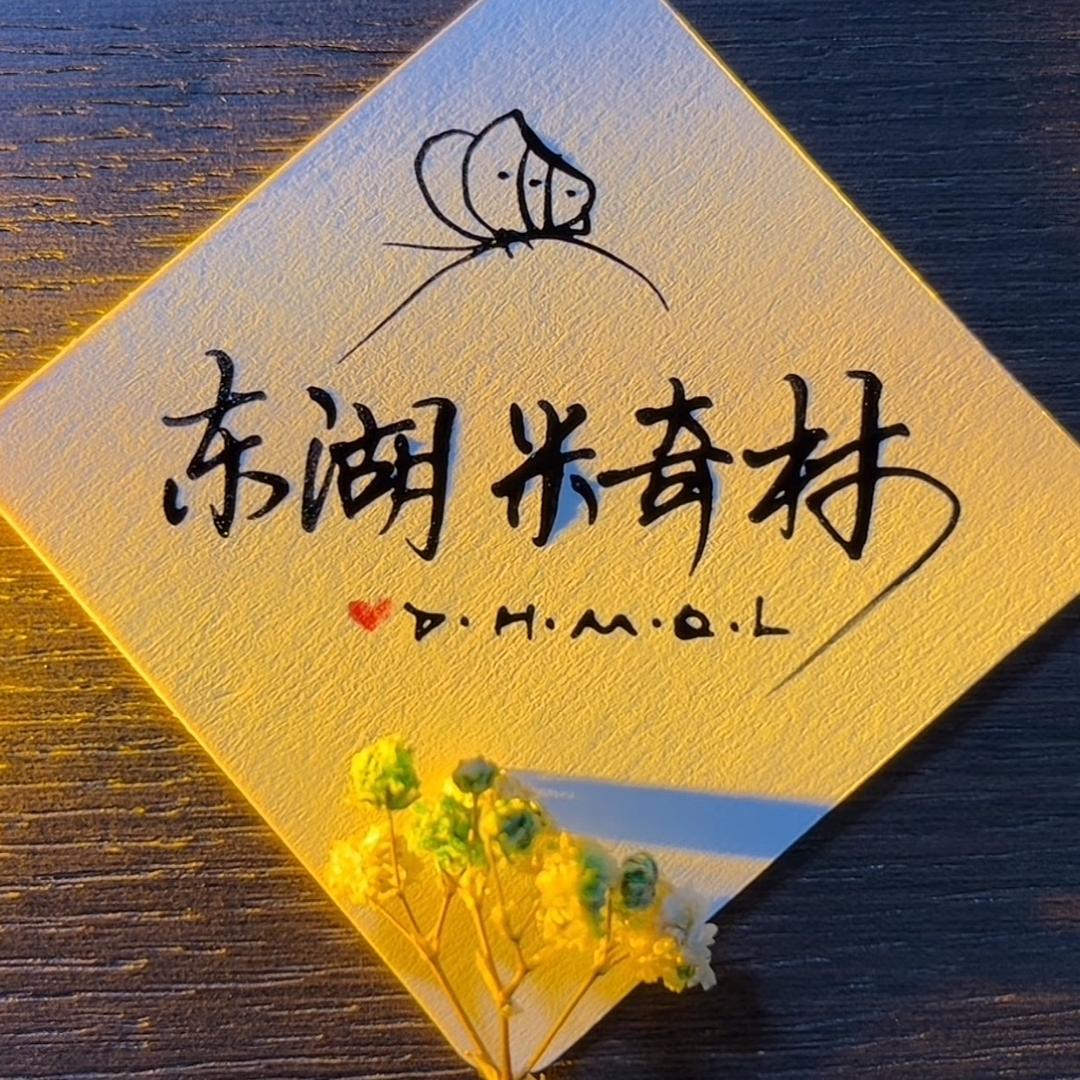 东湖米奇林
D·H·M·Q·L